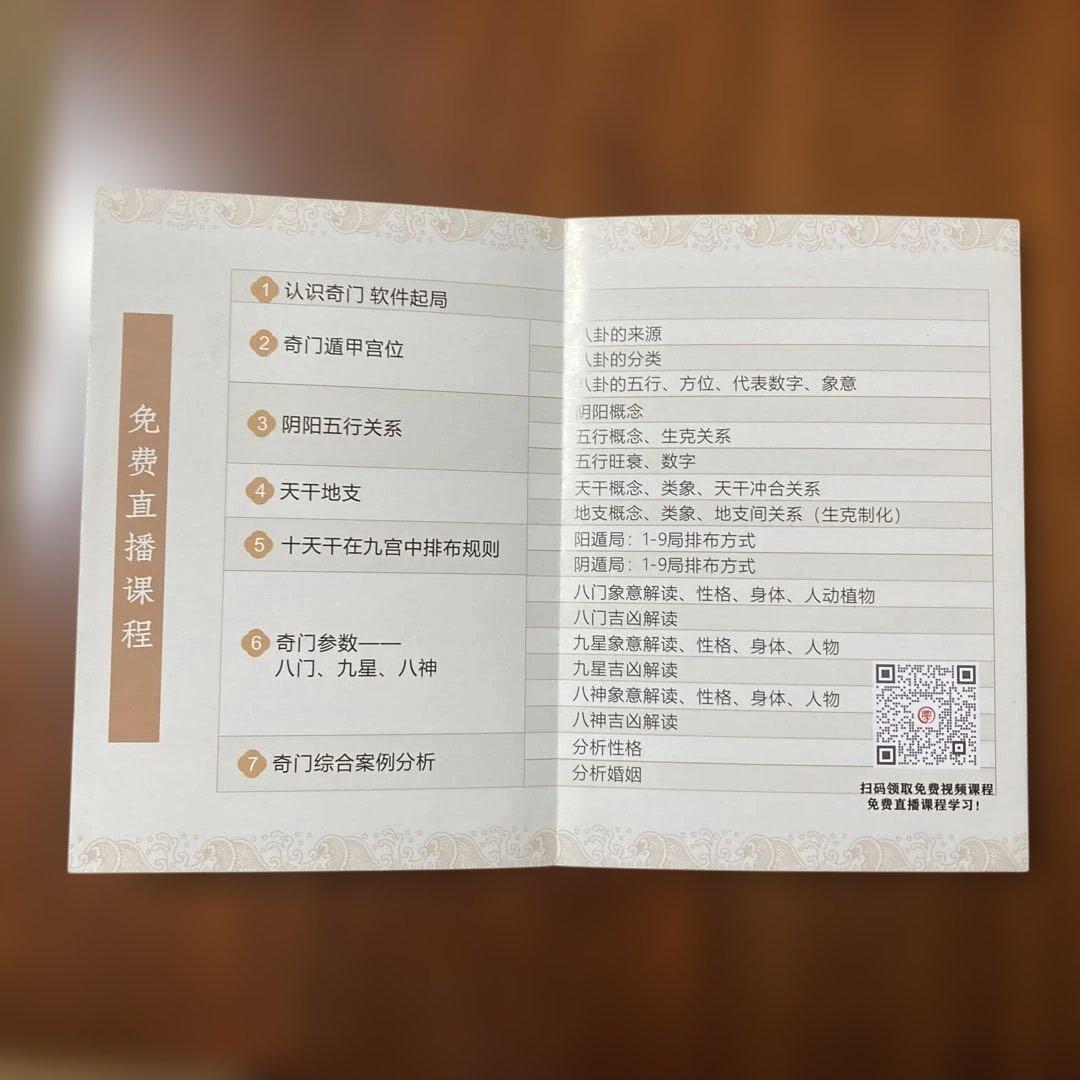 免费直播课程
1 认识奇门 软件起局
2 奇门遁甲宫位
八卦的来源
八卦的分类
八卦的五行、方位、代表数字、象意
3 阴阳五行关系
阴阳概念
五行概念、生克关系
五行旺衰、数字
4 天干地支
天干概念、类象、天干冲合关系
地支概念、类象、地支间关系（生克制化）
5 十天干在九宫中排布规则
阳遁局：1-9局排布方式
阴遁局：1-9局排布方式
6 奇门参数——
八门、九星、八神
八门象意解读、性格、身体、人动植物
八门吉凶解读
九星象意解读、性格、身体、人物
九星吉凶解读
八神象意解读、性格、身体、人物
八神吉凶解读
7 奇门综合案例分析
分析性格
分析婚姻
扫码领取免费视频课程
免费直播课程学习！